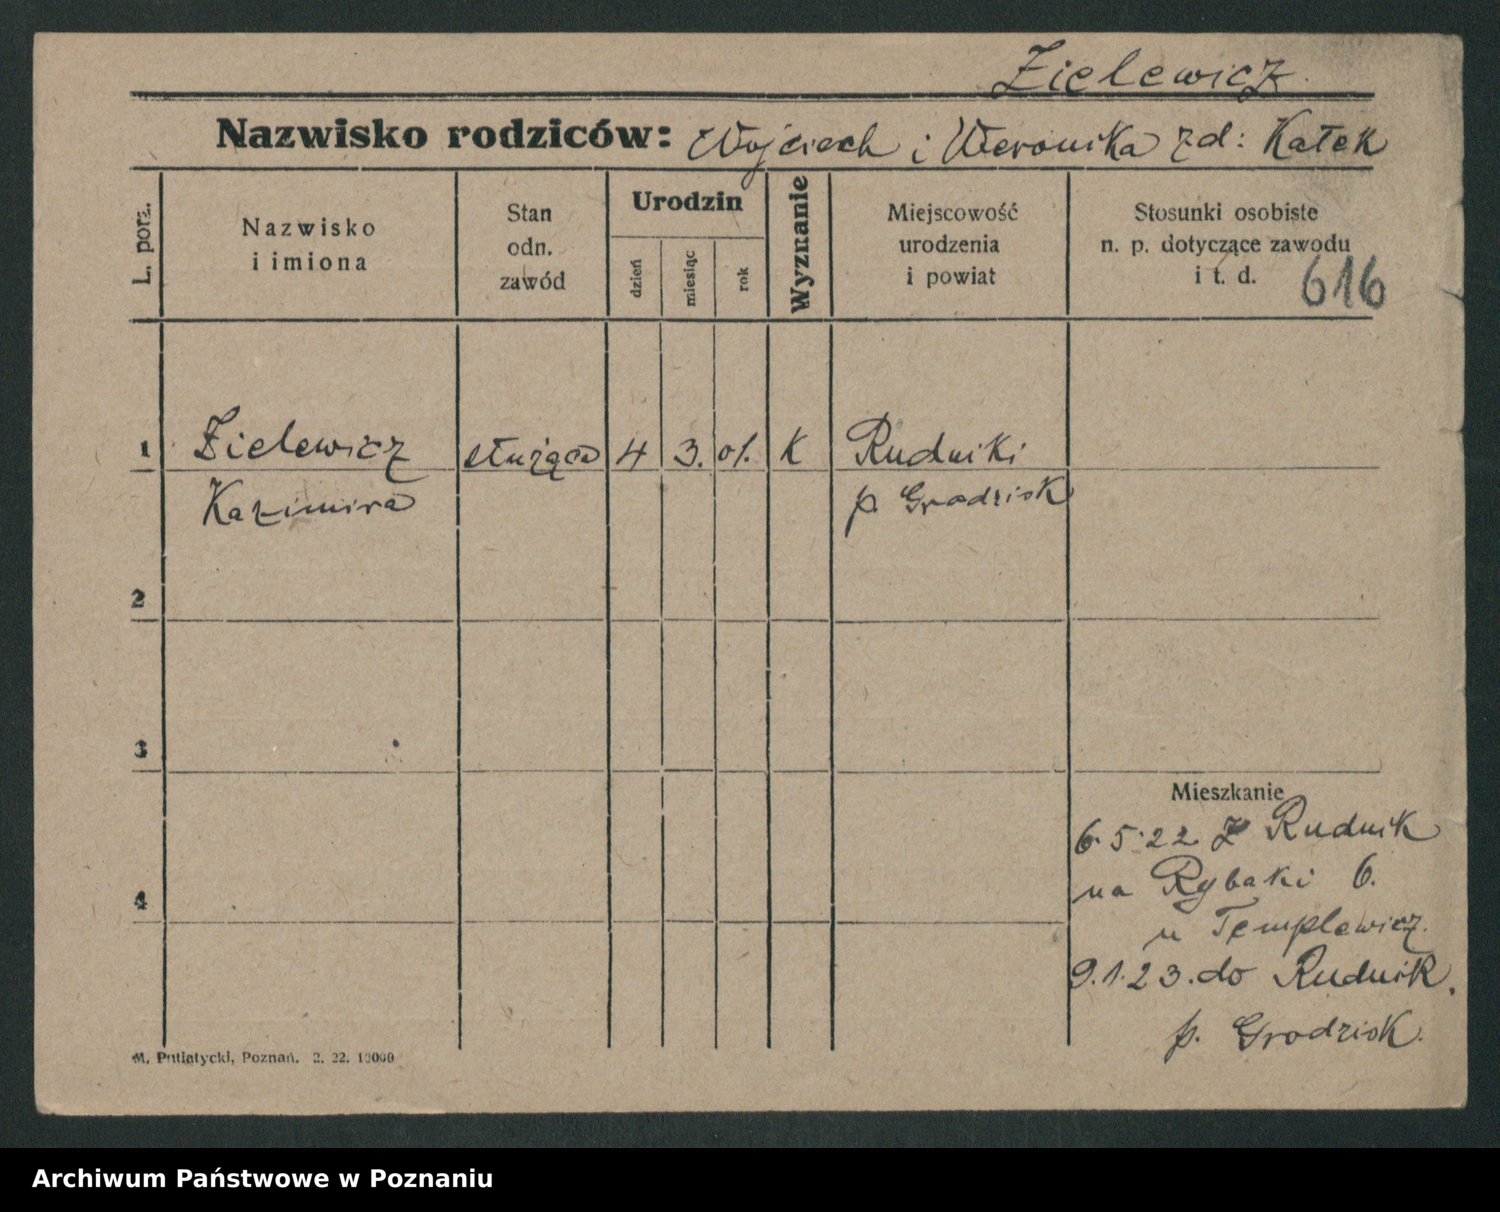 Zielewicz
Nazwisko rodziców: Wojciech i Weronika zd: Kałek
L. porz.
Nazwisko
i imiona
Stan
odn.
zawód
Urodzin
dzień
miesiąc
rok
Wyznanie
Miejscowość
urodzenia
i powiat
Stosunki osobiste
n. p. dotyczące zawodu
i t. d.
616
1 Zielewicz służąca 4 3. 01. K Rudniki
Kazimira p. Grodzisk
2
3
4
Mieszkanie
6.5.22 z Rudnik
na Rybaki 6.
u Templewicz.
9.1.23. do Rudnik.
p. Grodzisk.
M. Putiatycki, Poznań. 2. 22. 10000
Archiwum Państwowe w Poznaniu